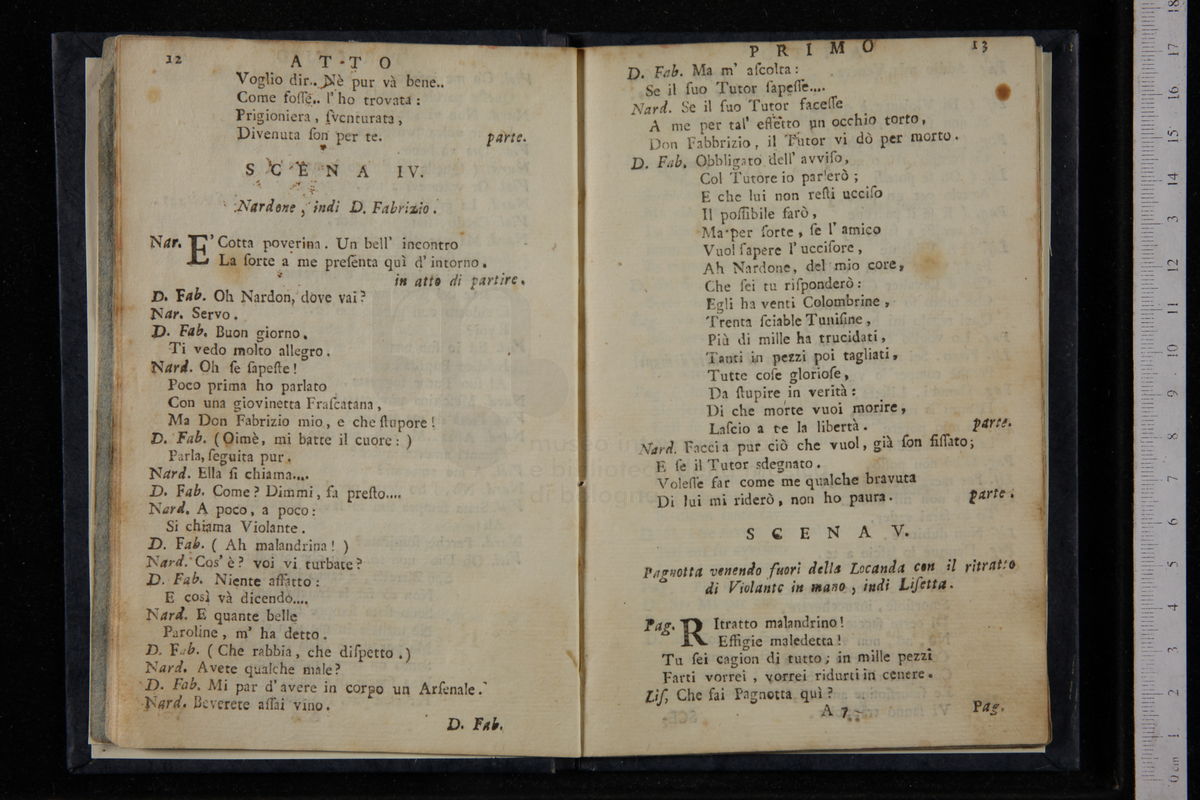 12
ATTO
Voglio dir.. Nè pur và bene..
Come foſſe.. l' ho trovata :
Prigioniera , ſventurata ,
Divenuta ſon per te. parte.
SCENA IV.
Nardone , indi D. Fabrizio .
Nar. E' Cotta poverina . Un bell' incontro
La ſorte a me preſenta quì d' intorno .
in atto di partire .
D. Fab. Oh Nardon, dove vai ?
Nar. Servo .
D. Fab. Buon giorno .
Ti vedo molto allegro .
Nard. Oh ſe ſapeſte !
Poco prima ho parlato
Con una giovinetta Fraſcatana ,
Ma Don Fabrizio mio , e che ſtupore !
D. Fab. ( Oimè, mi batte il cuore : )
Parla, ſeguita pur .
Nard. Ella ſi chiama....
D. Fab. Come ? Dimmi , fa preſto....
Nard. A poco, a poco :
Si chiama Violante .
D. Fab. ( Ah malandrina ! )
Nard. Cos' è ? voi vi turbate ?
D. Fab. Niente affatto :
E così và dicendo....
Nard. E quante belle
Paroline , m' ha detto .
D. Fab. ( Che rabbia , che diſpetto . )
Nard. Avete qualche male ?
D. Fab. Mi par d' avere in corpo un Arſenale .
Nard. Beverete aſſai vino .
D. Fab.
PRIMO
13
D. Fab. Ma m' aſcolta :
Se il ſuo Tutor ſapeſſe....
Nard. Se il ſuo Tutor faceſſe
A me per tal' effetto un occhio torto ,
Don Fabbrizio , il Tutor vi dò per morto .
D. Fab. Obbligato dell' avviſo ,
Col Tutore io parlerò ;
E che lui non reſti ucciſo
Il poſſibile farò ,
Ma per ſorte , ſe l' amico
Vuol ſapere l' ucciſore ,
Ah Nardone, del mio core ,
Che ſei tu riſponderò :
Egli ha venti Colombrine ,
Trenta ſciable Tuniſine ,
Più di mille ha trucidati ,
Tanti in pezzi poi tagliati ,
Tutte coſe glorioſe ,
Da ſtupire in verità :
Di che morte vuoi morire ,
Laſcio a te la libertà . parte.
Nard. Faccia pur ciò che vuol, già ſon fiſſato ;
E ſe il Tutor sdegnato .
Voleſſe far come me qualche bravuta
Di lui mi riderò , non ho paura . parte .
SCENA V.
Pagnotta venendo fuori della Locanda con il ritratto
di Violante in mano , indi Liſetta .
Pag. RItratto malandrino !
Effigie maledetta !
Tu ſei cagion di tutto ; in mille pezzi
Farti vorrei , vorrei ridurti in cenere .
Liſ, Che fai Pagnotta quì ?
A 7
Pag.